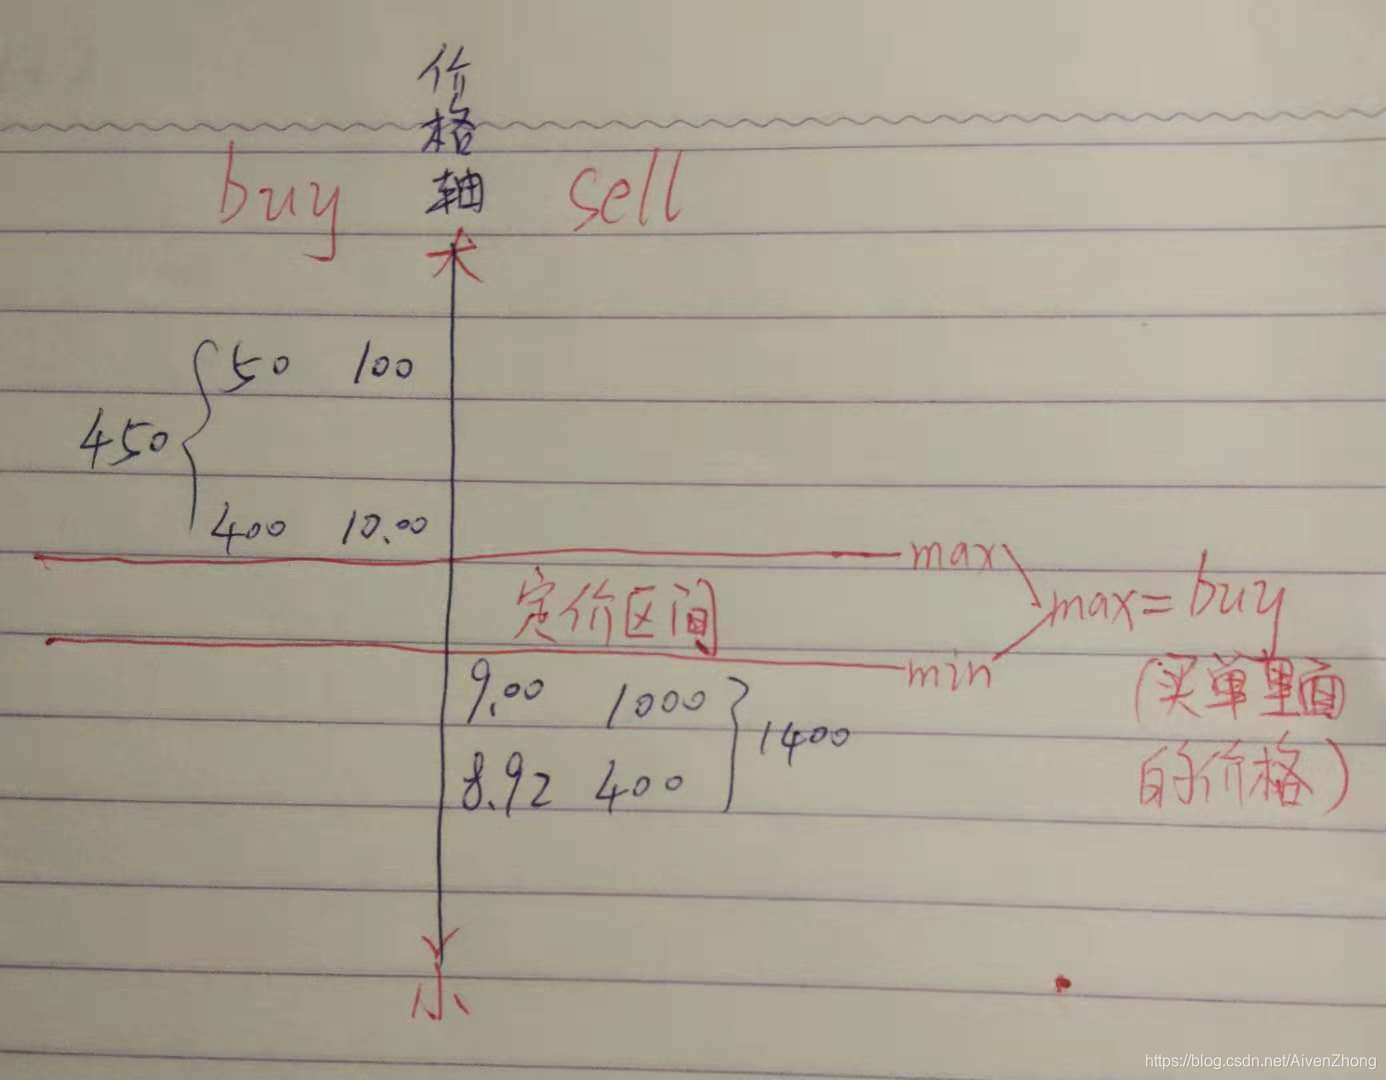 价格轴
buy sell
大
50 100
450
400 10.00
max
定价区间
max=buy
min
(买单里面
的价格)
9.00 1000
1400
8.92 400
小
https://blog.csdn.net/AivenZhong